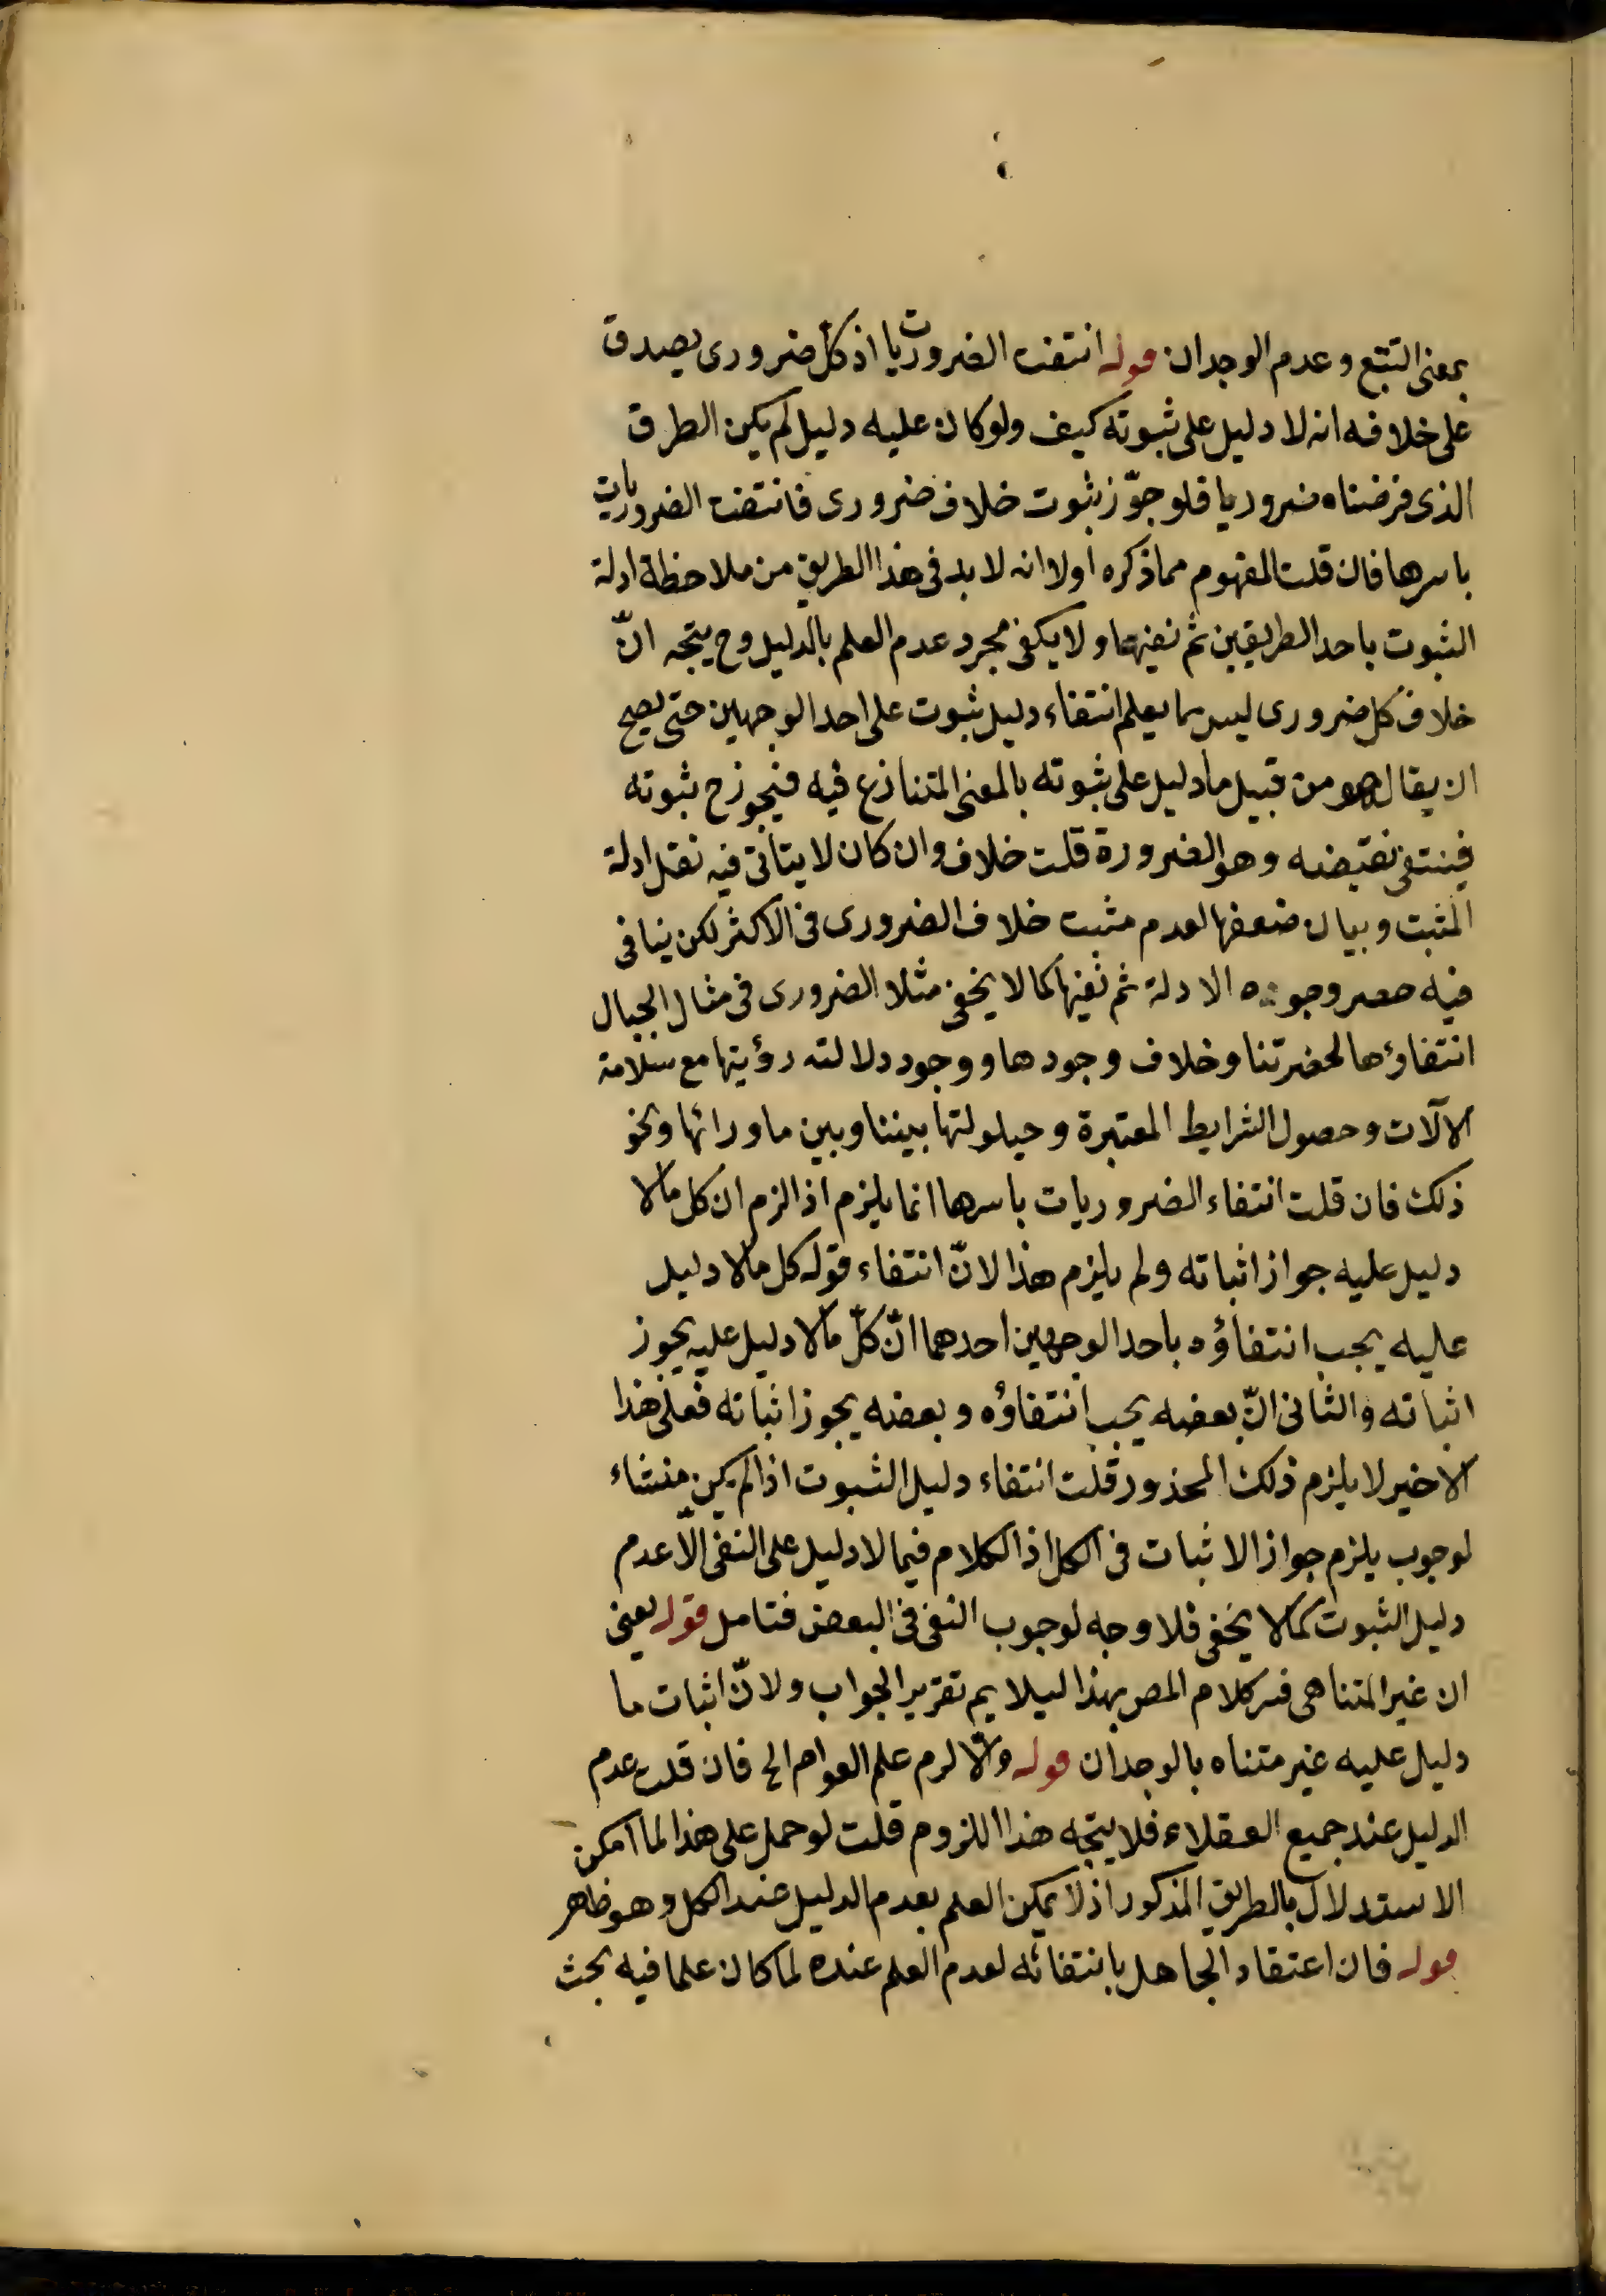 بمعنى التتبع وعدم الوجدان قوله انتفت الضروريات اذ كل ضرورى يصدق
على خلافه انه لا دليل على ثبوته كيف ولو كان عليه دليل لم يكن الطرق
الذى فرضناه ضروريا فلو جوّز ثبوت خلاف ضرورى فانتفت الضروريات
باسرها فان قلت المفهوم مما ذكره اولا انه لا بد فى هذا الطريق من ملاحظة ادلة
الثبوت باحد الطريقين ثم نفيها ولا يكفى مجرد عدم العلم بالدليل وح يتجه انّ
خلاف كل ضرورى ليس مما يعلم انتفاء دليل ثبوت على احد الوجهين حتى يصح
ان يقال هو من قبيل ما دليل على ثبوته بالمعنى المتنازع فيه فيجوز ح ثبوته
فينتفى نقيضه وهو الضرورة قلت خلاف وان كان لا يتاتى فيه نقل ادلة
المثبت وبيان ضعفها لعدم مثبت خلاف الضرورى فى الاكثر لكن ينافى
فيه حصر وجوه الادلة ثم نفيها كما لا يخفى مثلا الضرورى فى مثال الجبال
انتفاؤها لحضرتنا وخلاف وجودها ووجود دلالته رؤيتها مع سلامة
الآلات وحصول الشرايط المعتبرة وحيلولتها بيننا وبين ما ورائها ونحو
ذلك فان قلت انتفاء الضروريات باسرها انما يلزم اذا لزم ان كل ما لا
دليل عليه جواز اثباته ولم يلزم هذا لانّ انتفاء قوله كل ما لا دليل
عليه يجب انتفاؤه باحد الوجهين احدهما انّ كلّ ما لا دليل عليه يجوز
اثباته والثانى انّ بعضه يجب انتفاؤه وبعضه يجوز اثباته فعلى هذا
الاخير لا يلزم ذلك المحذور قلت انتفاء دليل الثبوت اذا لم يكن منشاء
لوجوب يلزم جواز الاثبات فى الكل اذ الكلام فيما لا دليل على النفى الّا عدم
دليل الثبوت كما لا يخفى فلا وجه لوجوب النفى فى البعض فتامل قوله يعنى
ان غير المتناهى فسر كلام المص بهذا ليلايم تقرير الجواب ولانّ اثبات ما
دليل عليه غير متناه بالوجدان قوله والّا لزم علم العوام الخ فان قلت عدم
الدليل عند جميع العقلاء فلا يتجه هذا اللزوم قلت لو حمل على هذا لما امكن
الاستدلال بالطريق المذكور اذ لا يمكن العلم بعدم الدليل عند الكل وهو ظاهر
قوله فان اعتقاد الجاهل بانتفائه لعدم العلم عنده لما كان علما فيه بحث